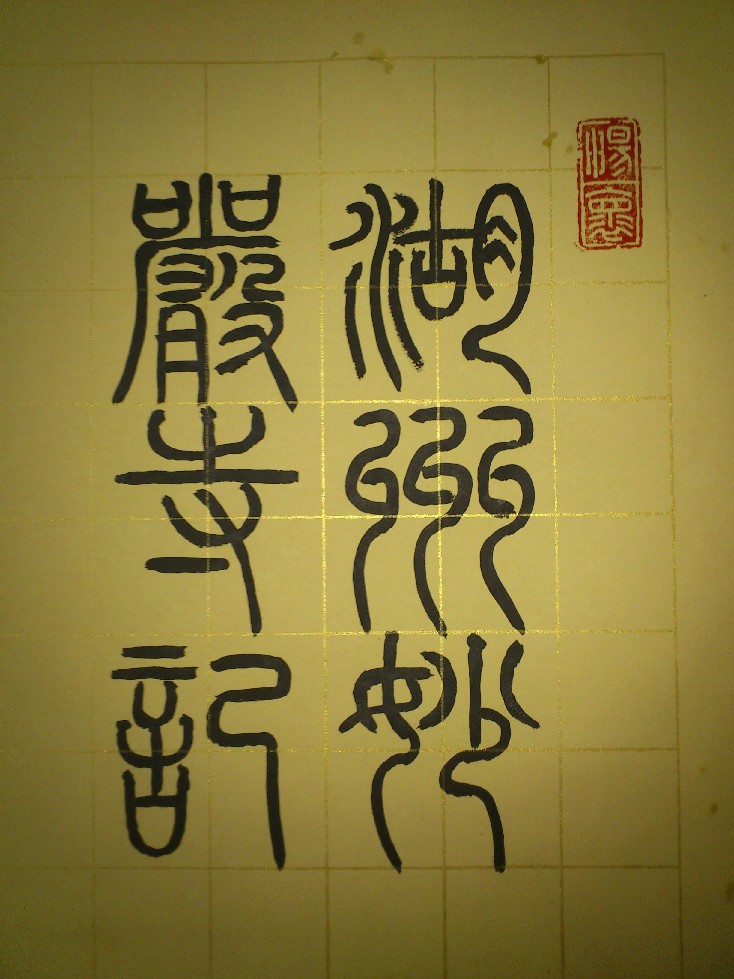 湖州妙
嚴寺記